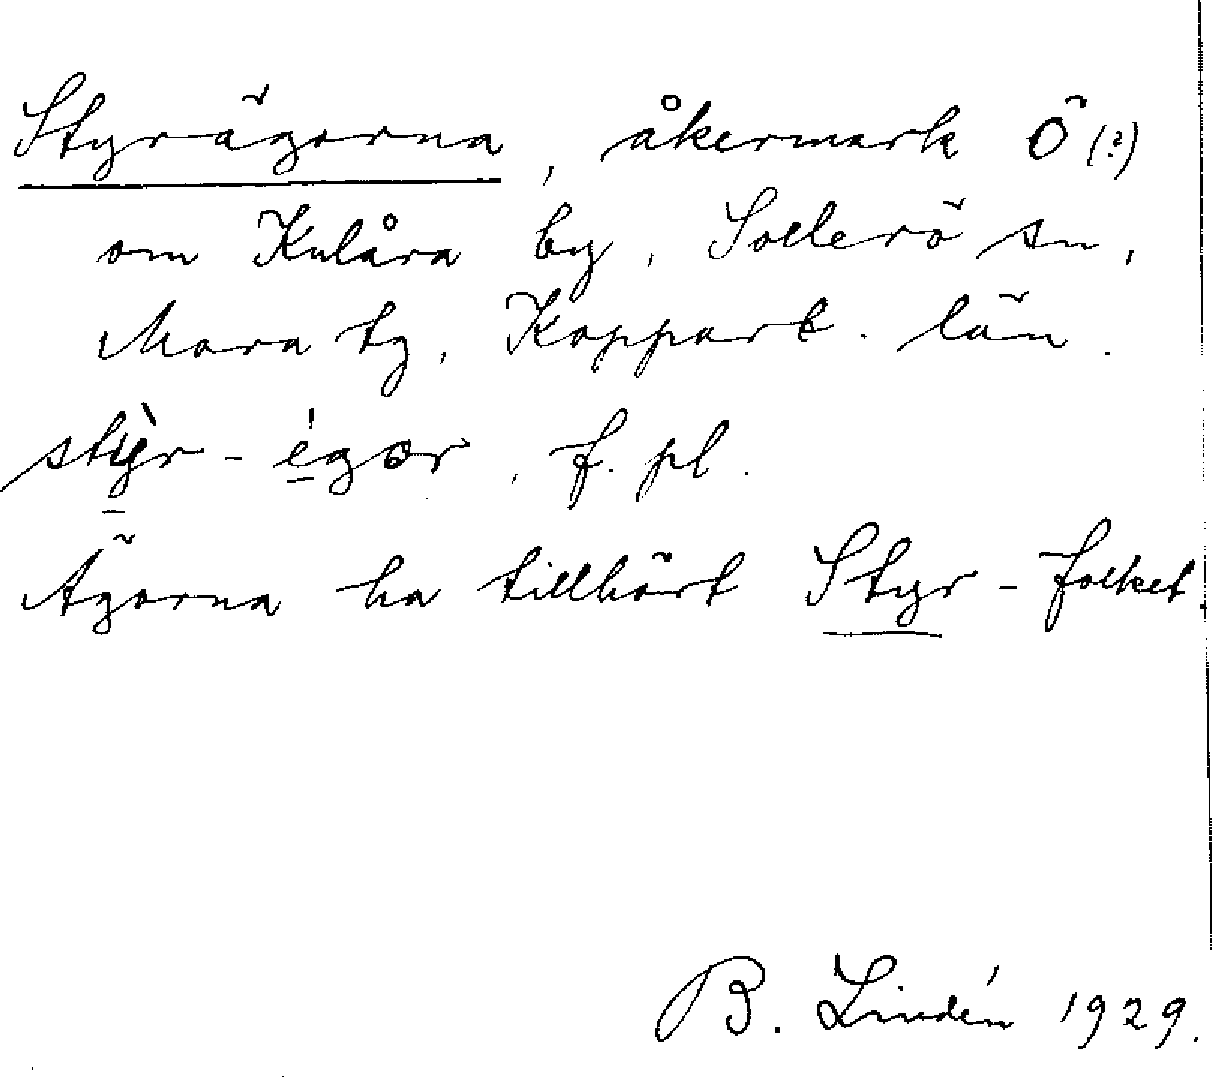 Styrägorna, åkermark Ö (?)
om Kulåra by, Sollerö sn,
Mora tg, Kopparb. län.
stỳr-égor, f. pl.
Ägorna ha tillhört Styr-folket.
B. Lindén 1929.